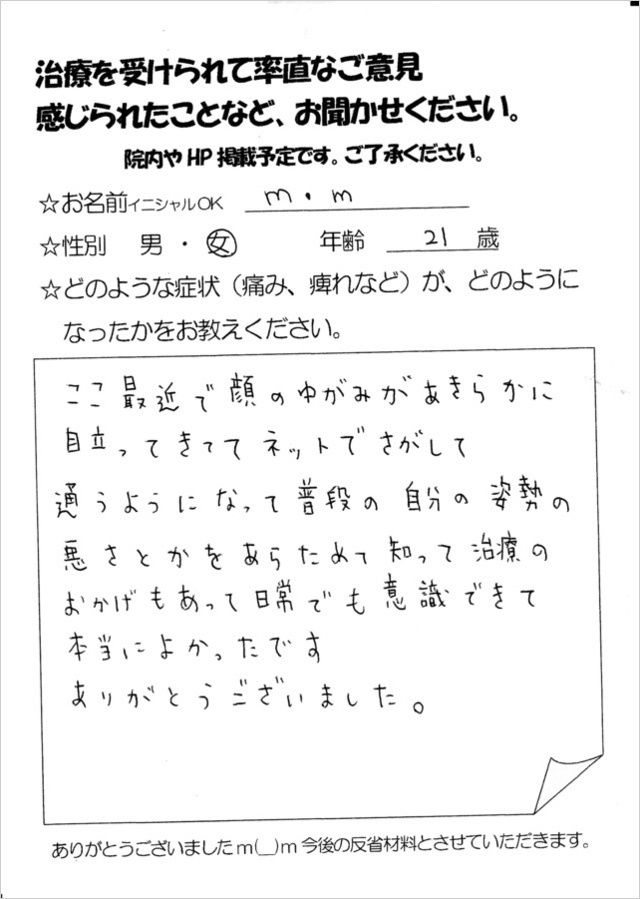 治療を受けられて率直なご意見
感じられたことなど、お聞かせください。
院内やHP掲載予定です。ご了承ください。
☆お名前イニシャルOK m・m
☆性別 男・女 年齢 21 歳
☆どのような症状（痛み、痺れなど）が、どのように
なったかをお教えください。
ここ最近で顔のゆがみがあきらかに
目立ってきてて ネットでさがして
通うようになって普段の自分の姿勢の
悪さとかをあらためて知って治療の
おかげもあって日常でも意識できて
本当によかったです
ありがとうございました。
ありがとうございましたm(__)m今後の反省材料とさせていただきます。